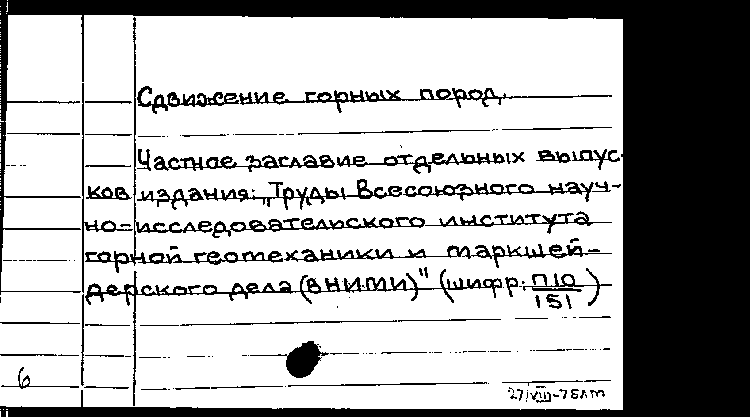 Сдвижение горных пород.
Частное заглавие отдельных выпус-
ков издания: „Труды Всесоюзного науч-
но-исследовательского института
горной геомеханики и маркшей-
дерского дела (ВНИМИ)" (шифр: П10/151)
6
27/VIII-75